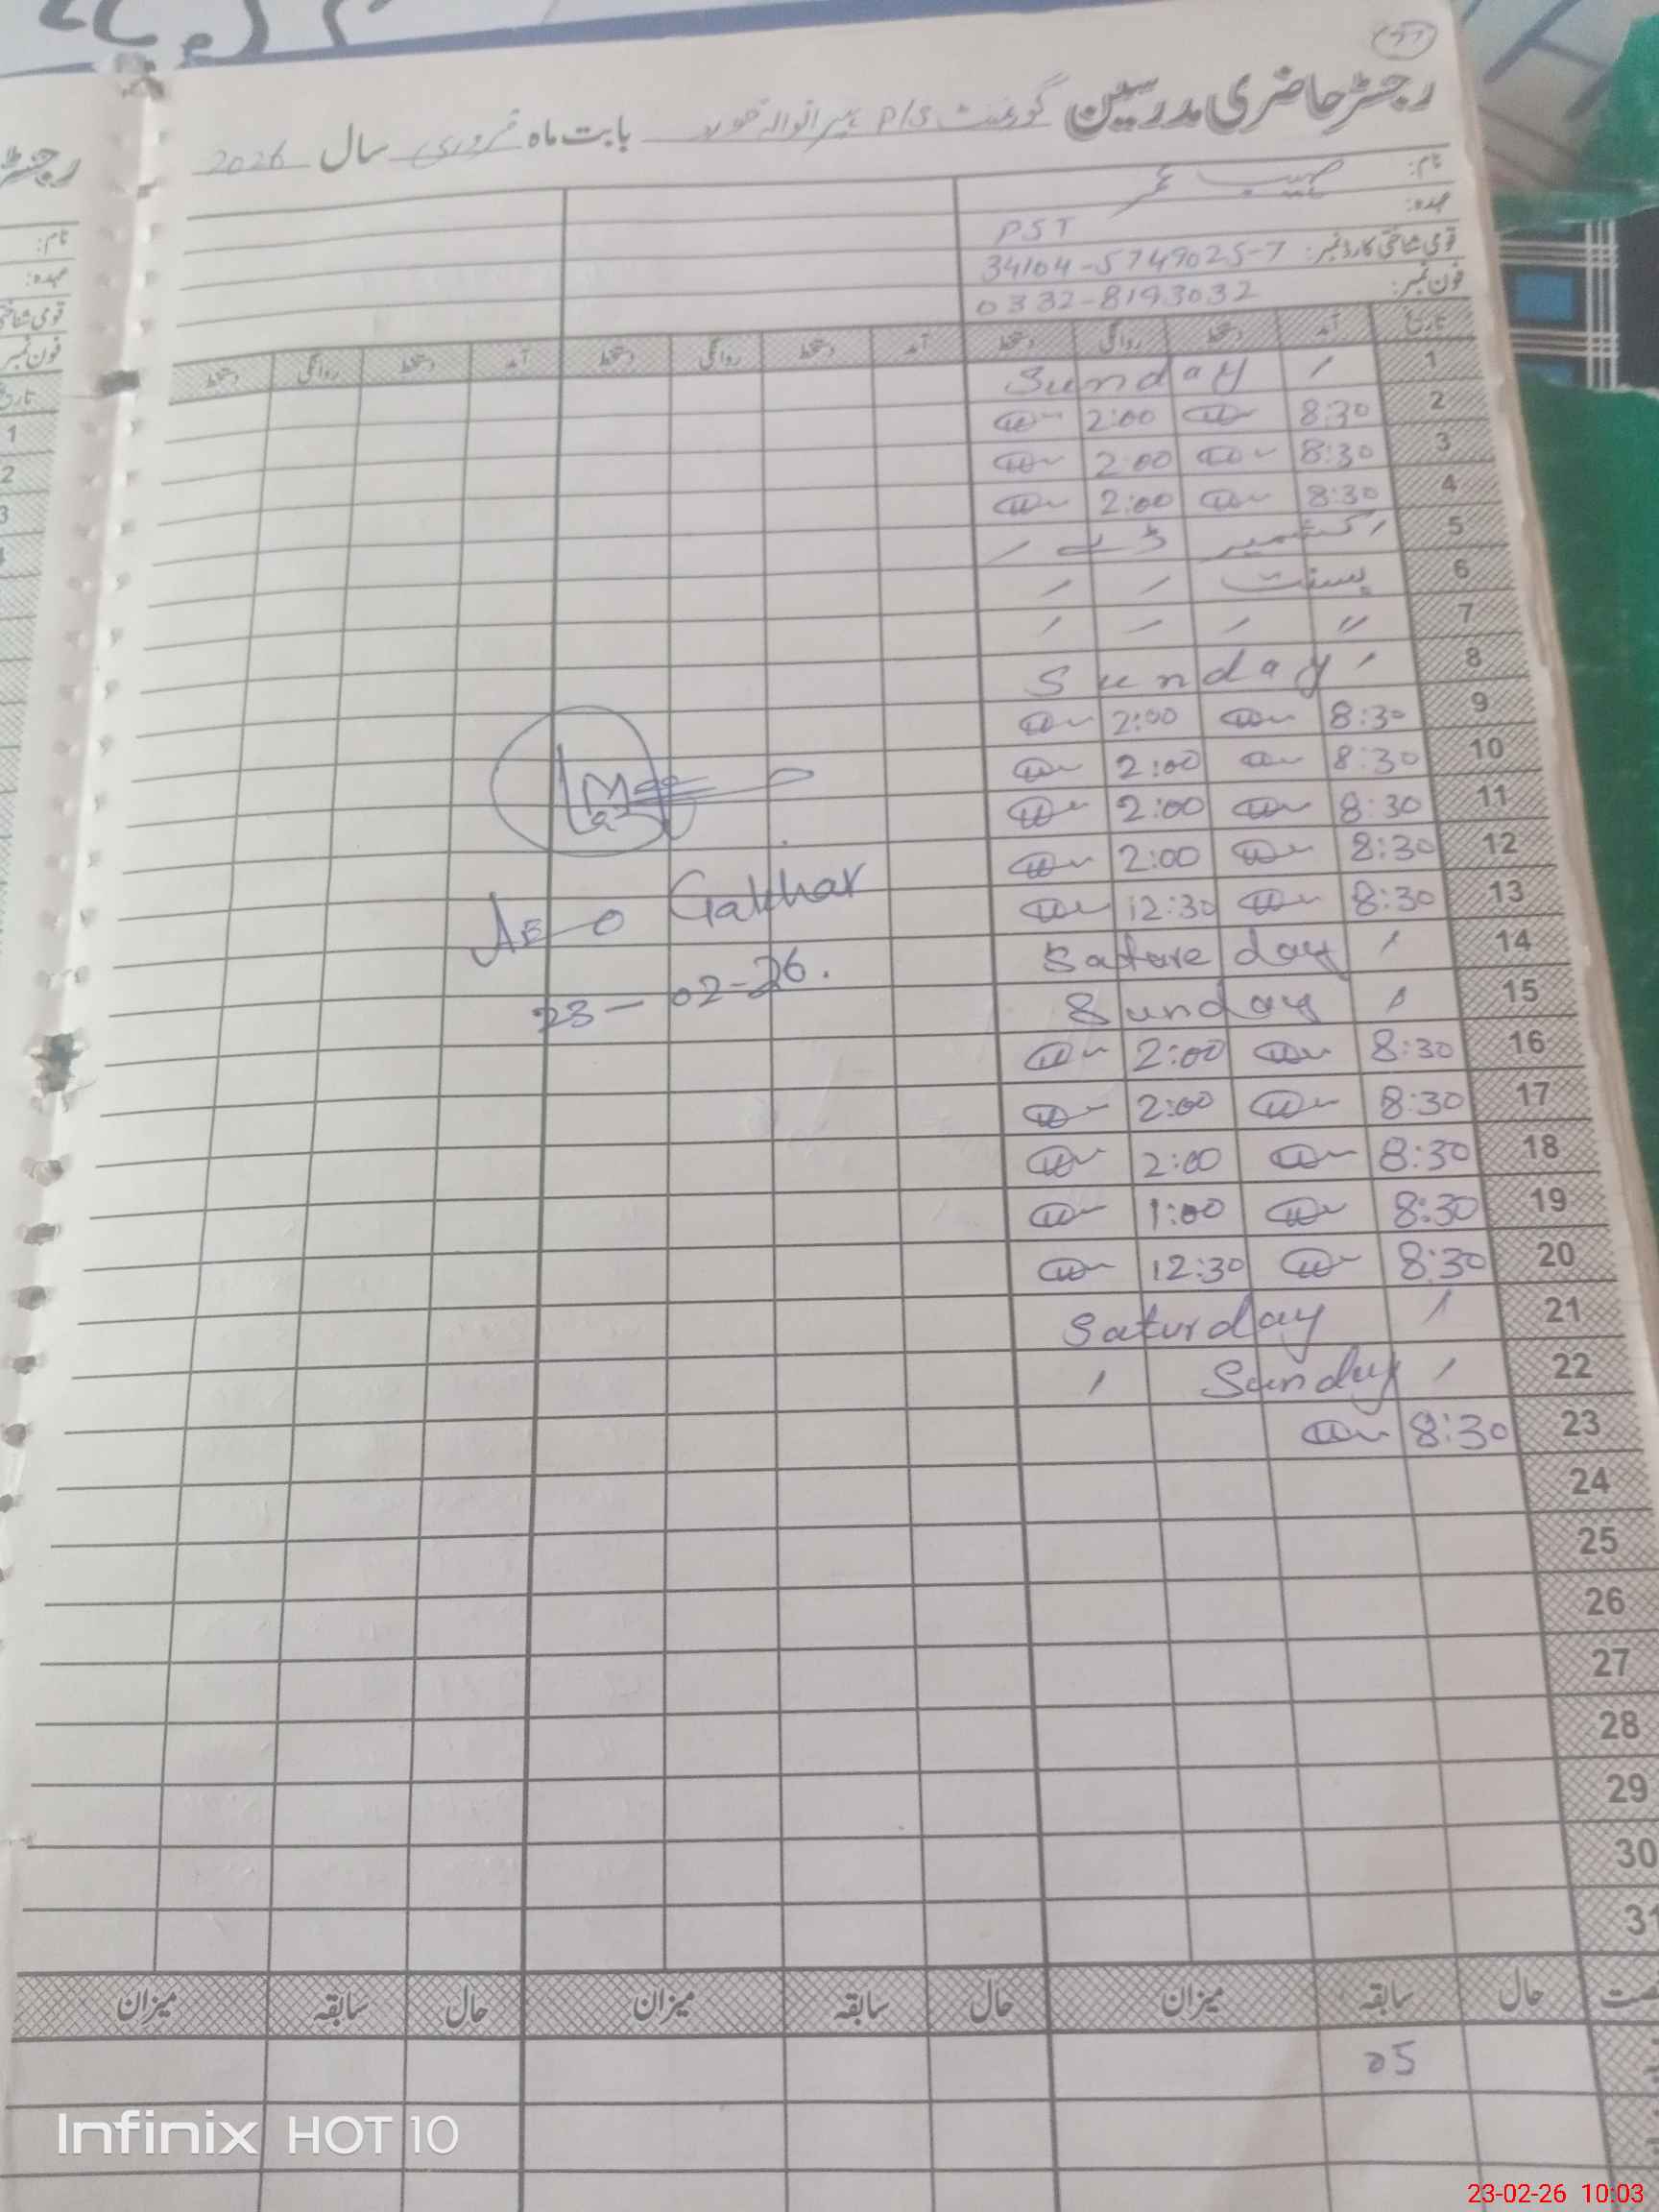 رجسٹر حاضری مدرسین گورنمنٹ P/S بابت ماہ فروری سال 2026
نام: صہیب عمر
عہدہ: PST
قومی شناختی کارڈ نمبر: 34104-5749025-7
فون نمبر: 0332-8193032
تاریخ آمد دستخط روانگی دستخط آمد دستخط روانگی دستخط آمد دستخط روانگی دستخط
1 Sunday
2 8:30 2:00
3 8:30 2:00
4 8:30 2:00
5 کشمیر ڈے
6 بسنت
7 "
8 Sunday
9 8:30 2:00
10 8:30 2:00
11 8:30 2:00
12 8:30 2:00
13 8:30 12:30
14 Sature day
15 Sunday
16 8:30 2:00
17 8:30 2:00
18 8:30 2:00
19 8:30 1:00
20 8:30 12:30
21 Saturday
22 Sunday
23 8:30
24
25
26
27
28
29
30
31
AEO Gakhar
23-02-26.
حال سابقہ میزان حال سابقہ میزان حال سابقہ میزان
05
رجسٹر
نام:
عہدہ:
قومی شناختی
فون نمبر
تاریخ
1
2
3
Infinix HOT 10
23-02-26 10:03